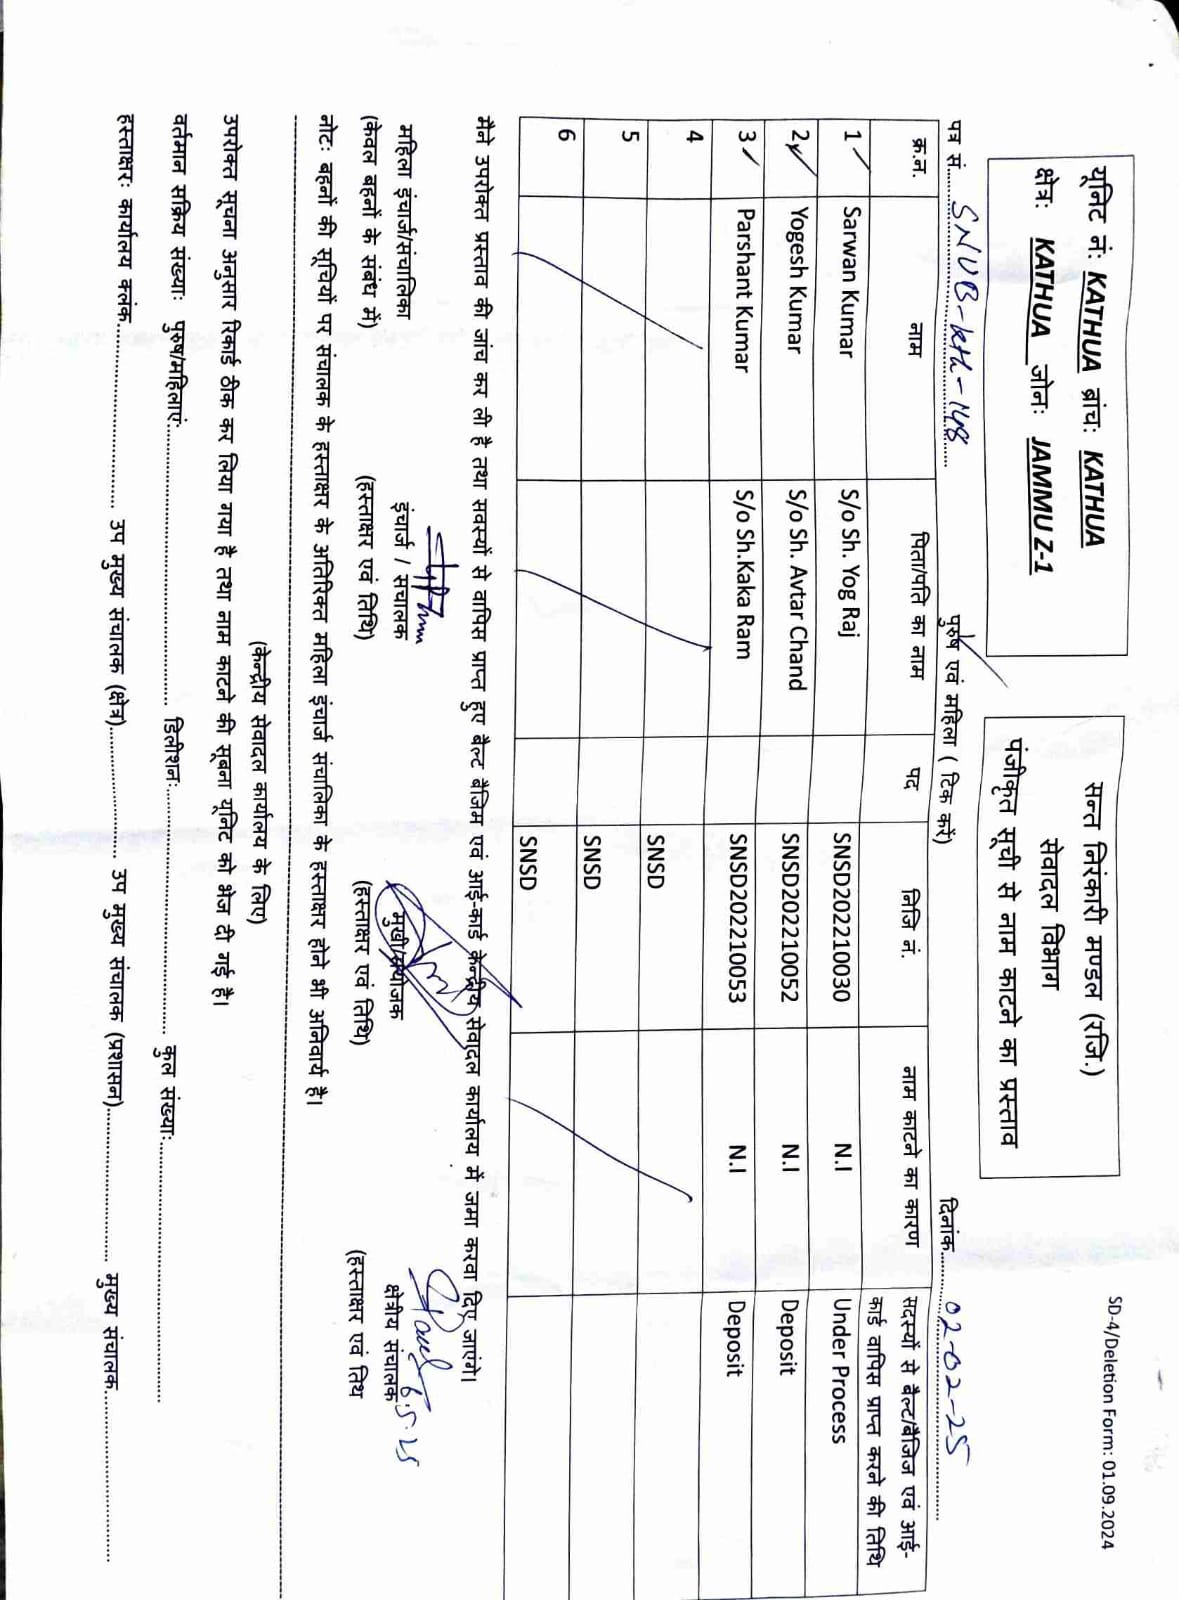 SD-4/Deletion Form: 01.09.2024
यूनिट नं: KATHUA ब्रांच: KATHUA
क्षेत्र: KATHUA जोन: JAMMU Z-1
सन्त निरंकारी मण्डल (रजि.)
सेवादल विभाग
पंजीकृत सूची से नाम काटने का प्रस्ताव
पत्र सं.....SNVB-kth-148..... पुरुष एवं महिला ( टिक करें) दिनांक.....02-02-25.....
क्र.न. नाम पिता/पति का नाम पद निजि नं. नाम काटने का कारण सदस्यों से बैल्ट/बैजिज एवं आई-
कार्ड वापिस प्राप्त करने की तिथि
1 Sarwan Kumar S/o Sh. Yog Raj SNSD202210030 N.I Under Process
2 Yogesh Kumar S/o Sh. Avtar Chand SNSD202210052 N.I Deposit
3 Parshant Kumar S/o Sh.Kaka Ram SNSD202210053 N.I Deposit
4 SNSD
5 SNSD
6 SNSD
मैने उपरोक्त प्रस्ताव की जांच कर ली है तथा सवस्यों से वापिस प्राप्त हुए बैल्ट बैजिम एवं आई-कार्ड केन्द्रीय सेवादल कार्यालय में जमा करवा दिए जाएंगे।
6.5.25
महिला इंचार्ज/संचालिका इंचार्ज / संचालक मुखी/प्रयोजक क्षेत्रीय संचालक
(केवल बहनों के संबंध में) (हस्ताक्षर एवं तिथि) (हस्ताक्षर एवं तिथि) (हस्ताक्षर एवं तिथ
नोटः बहनों की सूचियों पर संचालक के हस्ताक्षर के अतिरिक्त महिला इंचार्ज संचालिका के हस्ताक्षर होने भी अनिवार्य है।
(केन्द्रीय सेवादल कार्यालय के लिए)
उपरोक्त सूचना अनुसार रिकार्ड ठीक कर लिया गया है तथा नाम काटने की सूबना यूनिट को भेज दी गई है।
वर्तमान सक्रिय संख्याः पुरुष/महिलाएं..... डिलीशनः..... कुल संख्याः.....
हस्ताक्षरः कार्यालय क्लंक..... उप मुख्य संचालक (क्षेत्र)..... उप मुख्य संचालक (प्रशासन)..... मुख्य संचालक.....